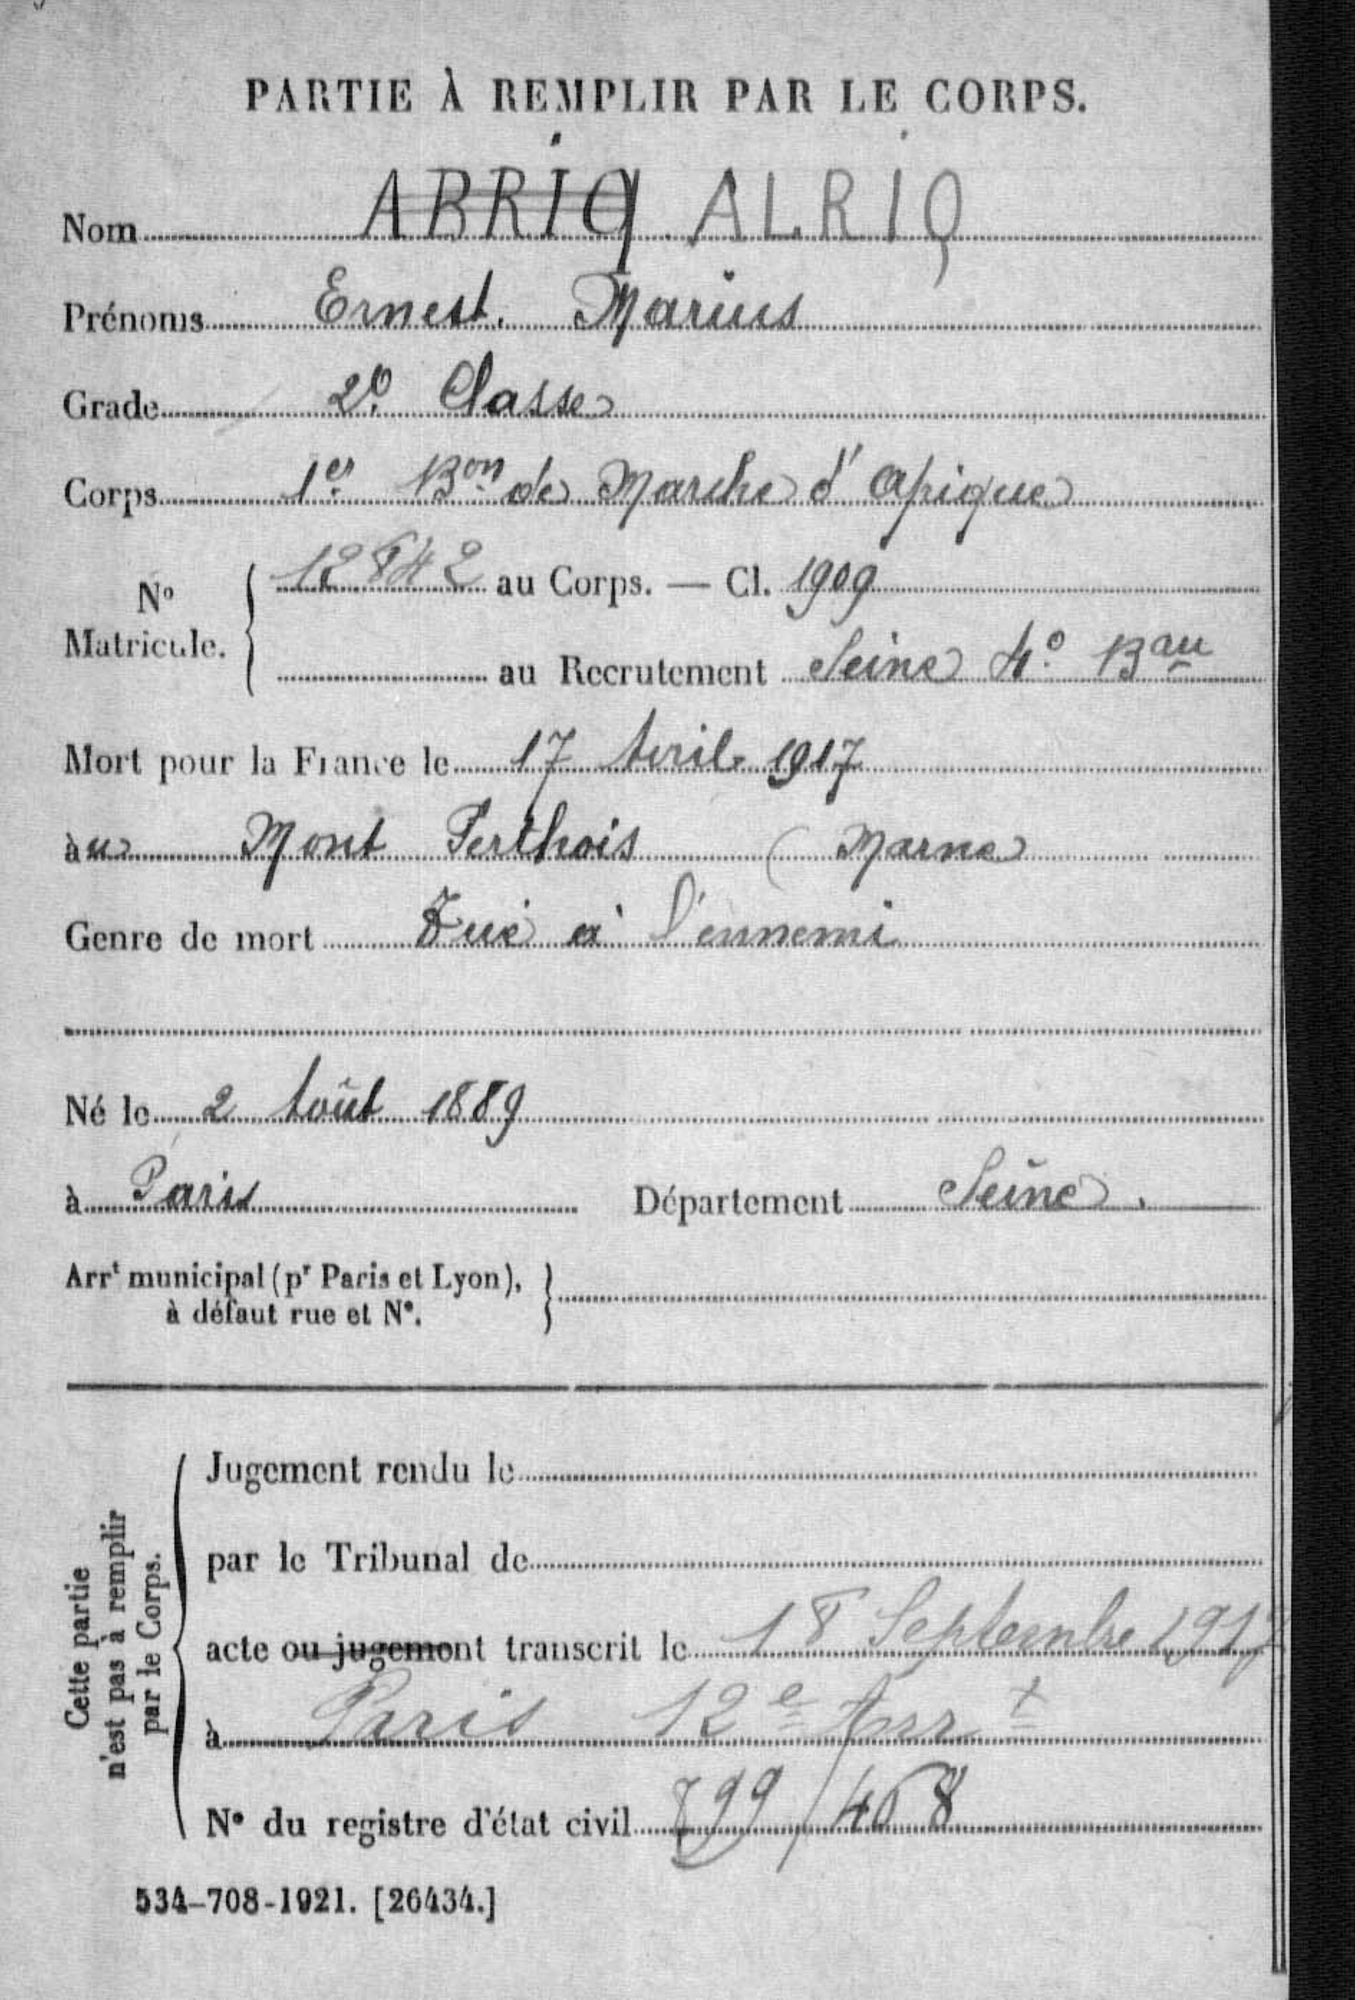 PARTIE À REMPLIR PAR LE CORPS.
Nom ABRIQ ALRIQ
Prénoms Ernest. Marius
Grade 2e Classe
Corps 1er Bon de Marche d'Afrique
No Matricule. 12842 au Corps. — Cl. 1909
au Recrutement Seine 4e Bau
Mort pour la France le 17 Avril 1917
àu Mont Perthois (Marne
Genre de mort Tué à l'ennemi
Né le 2 Août 1889
à Paris Département Seine.
Arrt municipal (pr Paris et Lyon),
à défaut rue et No.
Cette partie
n'est pas à remplir
par le Corps.
Jugement rendu le
par le Tribunal de
acte ou jugement transcrit le 18 Septembre 1917
à Paris 12e Arrt
No du registre d'état civil 468
534-708-1921. [26434.]